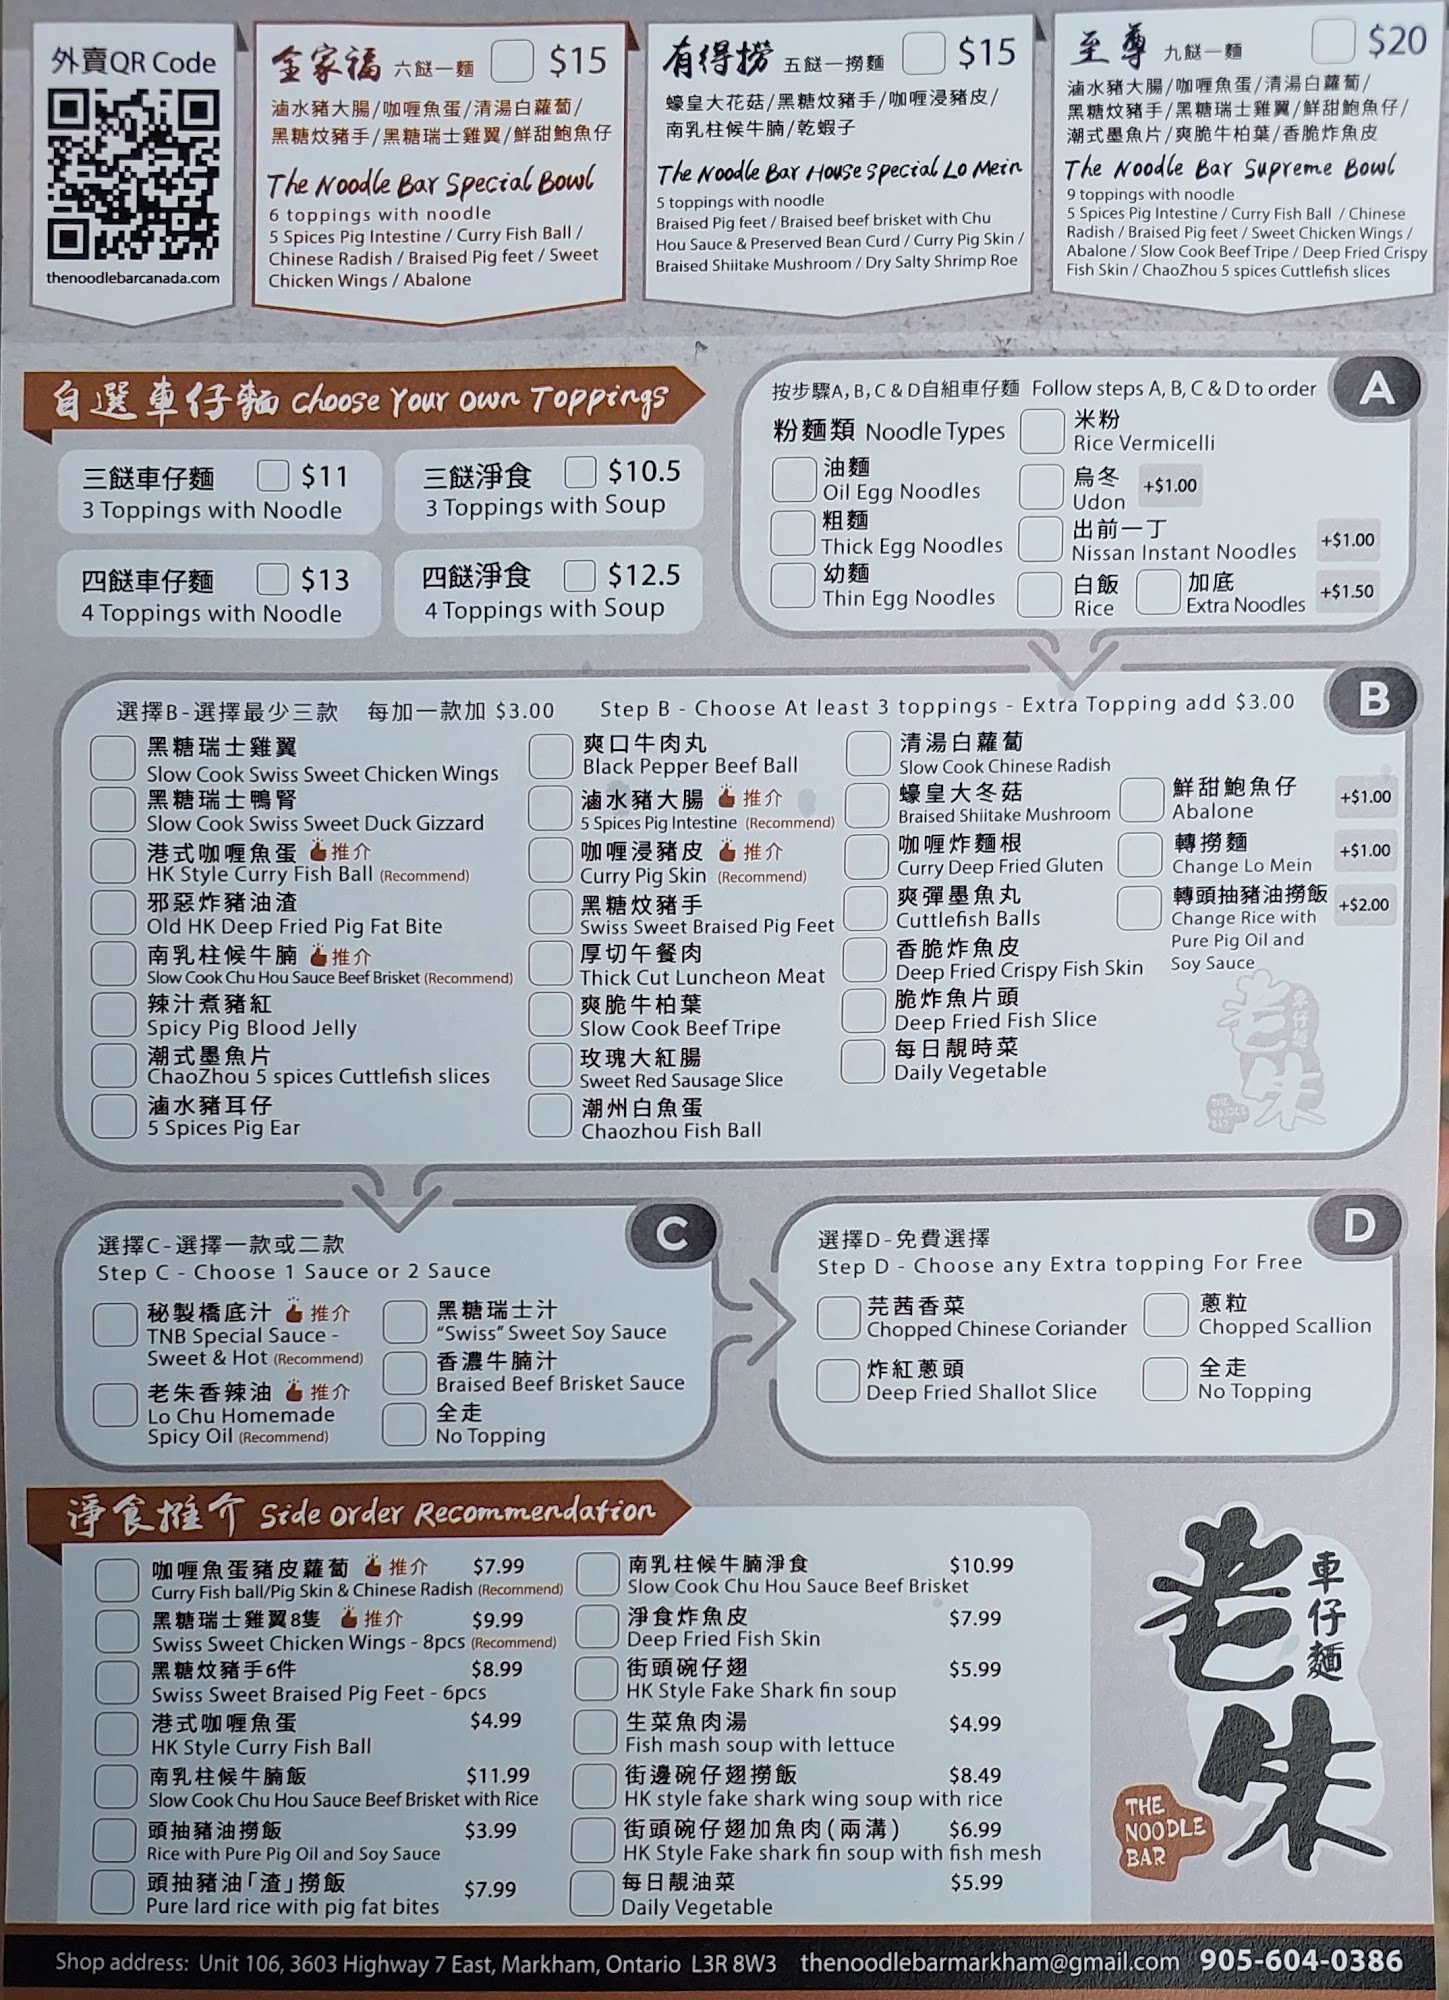 外賣QR Code
thenoodlebarcanada.com
全家福 六餸一麵 $15
滷水豬大腸/咖喱魚蛋/清湯白蘿蔔/
黑糖炆豬手/黑糖瑞士雞翼/鮮甜鮑魚仔
The Noodle Bar Special Bowl
6 toppings with noodle
5 Spices Pig Intestine / Curry Fish Ball /
Chinese Radish / Braised Pig feet / Sweet
Chicken Wings / Abalone
有得撈 五餸一撈麵 $15
蠔皇大花菇/黑糖炆豬手/咖喱浸豬皮/
南乳柱候牛腩/乾蝦子
The Noodle Bar House special Lo Mein
5 toppings with noodle
Braised Pig feet / Braised beef brisket with Chu
Hou Sauce & Preserved Bean Curd / Curry Pig Skin /
Braised Shiitake Mushroom / Dry Salty Shrimp Roe
至尊 九餸一麵 $20
滷水豬大腸/咖喱魚蛋/清湯白蘿蔔/
黑糖炆豬手/黑糖瑞士雞翼/鮮甜鮑魚仔/
潮式墨魚片/爽脆牛柏葉/香脆炸魚皮
The Noodle Bar Supreme Bowl
9 toppings with noodle
5 Spices Pig Intestine / Curry Fish Ball / Chinese
Radish / Braised Pig feet / Sweet Chicken Wings /
Abalone / Slow Cook Beef Tripe / Deep Fried Crispy
Fish Skin / ChaoZhou 5 spices Cuttlefish slices
自選車仔麵 Choose Your Own Toppings
三餸車仔麵 $11
3 Toppings with Noodle
三餸淨食 $10.5
3 Toppings with Soup
四餸車仔麵 $13
4 Toppings with Noodle
四餸淨食 $12.5
4 Toppings with Soup
A
按步驟A, B, C & D自組車仔麵 Follow steps A, B, C & D to order
粉麵類 Noodle Types
油麵
Oil Egg Noodles
粗麵
Thick Egg Noodles
幼麵
Thin Egg Noodles
米粉
Rice Vermicelli
烏冬
Udon +$1.00
出前一丁
Nissan Instant Noodles +$1.00
白飯
Rice
加底
Extra Noodles +$1.50
B
選擇B-選擇最少三款 每加一款加 $3.00 Step B - Choose At least 3 toppings - Extra Topping add $3.00
黑糖瑞士雞翼
Slow Cook Swiss Sweet Chicken Wings
黑糖瑞士鴨腎
Slow Cook Swiss Sweet Duck Gizzard
港式咖喱魚蛋 推介
HK Style Curry Fish Ball (Recommend)
邪惡炸豬油渣
Old HK Deep Fried Pig Fat Bite
南乳柱候牛腩 推介
Slow Cook Chu Hou Sauce Beef Brisket (Recommend)
辣汁煮豬紅
Spicy Pig Blood Jelly
潮式墨魚片
ChaoZhou 5 spices Cuttlefish slices
滷水豬耳仔
5 Spices Pig Ear
爽口牛肉丸
Black Pepper Beef Ball
滷水豬大腸 推介
5 Spices Pig Intestine (Recommend)
咖喱浸豬皮 推介
Curry Pig Skin (Recommend)
黑糖炆豬手
Swiss Sweet Braised Pig Feet
厚切午餐肉
Thick Cut Luncheon Meat
爽脆牛柏葉
Slow Cook Beef Tripe
玫瑰大紅腸
Sweet Red Sausage Slice
潮州白魚蛋
Chaozhou Fish Ball
清湯白蘿蔔
Slow Cook Chinese Radish
蠔皇大冬菇
Braised Shiitake Mushroom
咖喱炸麵根
Curry Deep Fried Gluten
爽彈墨魚丸
Cuttlefish Balls
香脆炸魚皮
Deep Fried Crispy Fish Skin
脆炸魚片頭
Deep Fried Fish Slice
每日靚時菜
Daily Vegetable
鮮甜鮑魚仔
Abalone +$1.00
轉撈麵
Change Lo Mein +$1.00
轉頭抽豬油撈飯 +$2.00
Change Rice with
Pure Pig Oil and
Soy Sauce
老朱
車仔麵
THE
NOODLE
BAR
C
選擇C-選擇一款或二款
Step C - Choose 1 Sauce or 2 Sauce
秘製橋底汁 推介
TNB Special Sauce -
Sweet & Hot (Recommend)
老朱香辣油 推介
Lo Chu Homemade
Spicy Oil (Recommend)
黑糖瑞士汁
"Swiss" Sweet Soy Sauce
香濃牛腩汁
Braised Beef Brisket Sauce
全走
No Topping
D
選擇D-免費選擇
Step D - Choose any Extra topping For Free
芫茜香菜
Chopped Chinese Coriander
炸紅蔥頭
Deep Fried Shallot Slice
蔥粒
Chopped Scallion
全走
No Topping
淨食推介 Side Order Recommendation
咖喱魚蛋豬皮蘿蔔 推介 $7.99
Curry Fish ball/Pig Skin & Chinese Radish (Recommend)
黑糖瑞士雞翼8隻 推介 $9.99
Swiss Sweet Chicken Wings - 8pcs (Recommend)
黑糖炆豬手6件 $8.99
Swiss Sweet Braised Pig Feet - 6pcs
港式咖喱魚蛋 $4.99
HK Style Curry Fish Ball
南乳柱候牛腩飯 $11.99
Slow Cook Chu Hou Sauce Beef Brisket with Rice
頭抽豬油撈飯 $3.99
Rice with Pure Pig Oil and Soy Sauce
頭抽豬油「渣」撈飯 $7.99
Pure lard rice with pig fat bites
南乳柱候牛腩淨食 $10.99
Slow Cook Chu Hou Sauce Beef Brisket
淨食炸魚皮 $7.99
Deep Fried Fish Skin
街頭碗仔翅 $5.99
HK Style Fake Shark fin soup
生菜魚肉湯 $4.99
Fish mash soup with lettuce
街邊碗仔翅撈飯 $8.49
HK style fake shark wing soup with rice
街頭碗仔翅加魚肉(兩溝) $6.99
HK Style Fake shark fin soup with fish mesh
每日靚油菜 $5.99
Daily Vegetable
老朱
車仔麵
THE
NOODLE
BAR
Shop address: Unit 106, 3603 Highway 7 East, Markham, Ontario L3R 8W3 thenoodlebarmarkham@gmail.com 905-604-0386